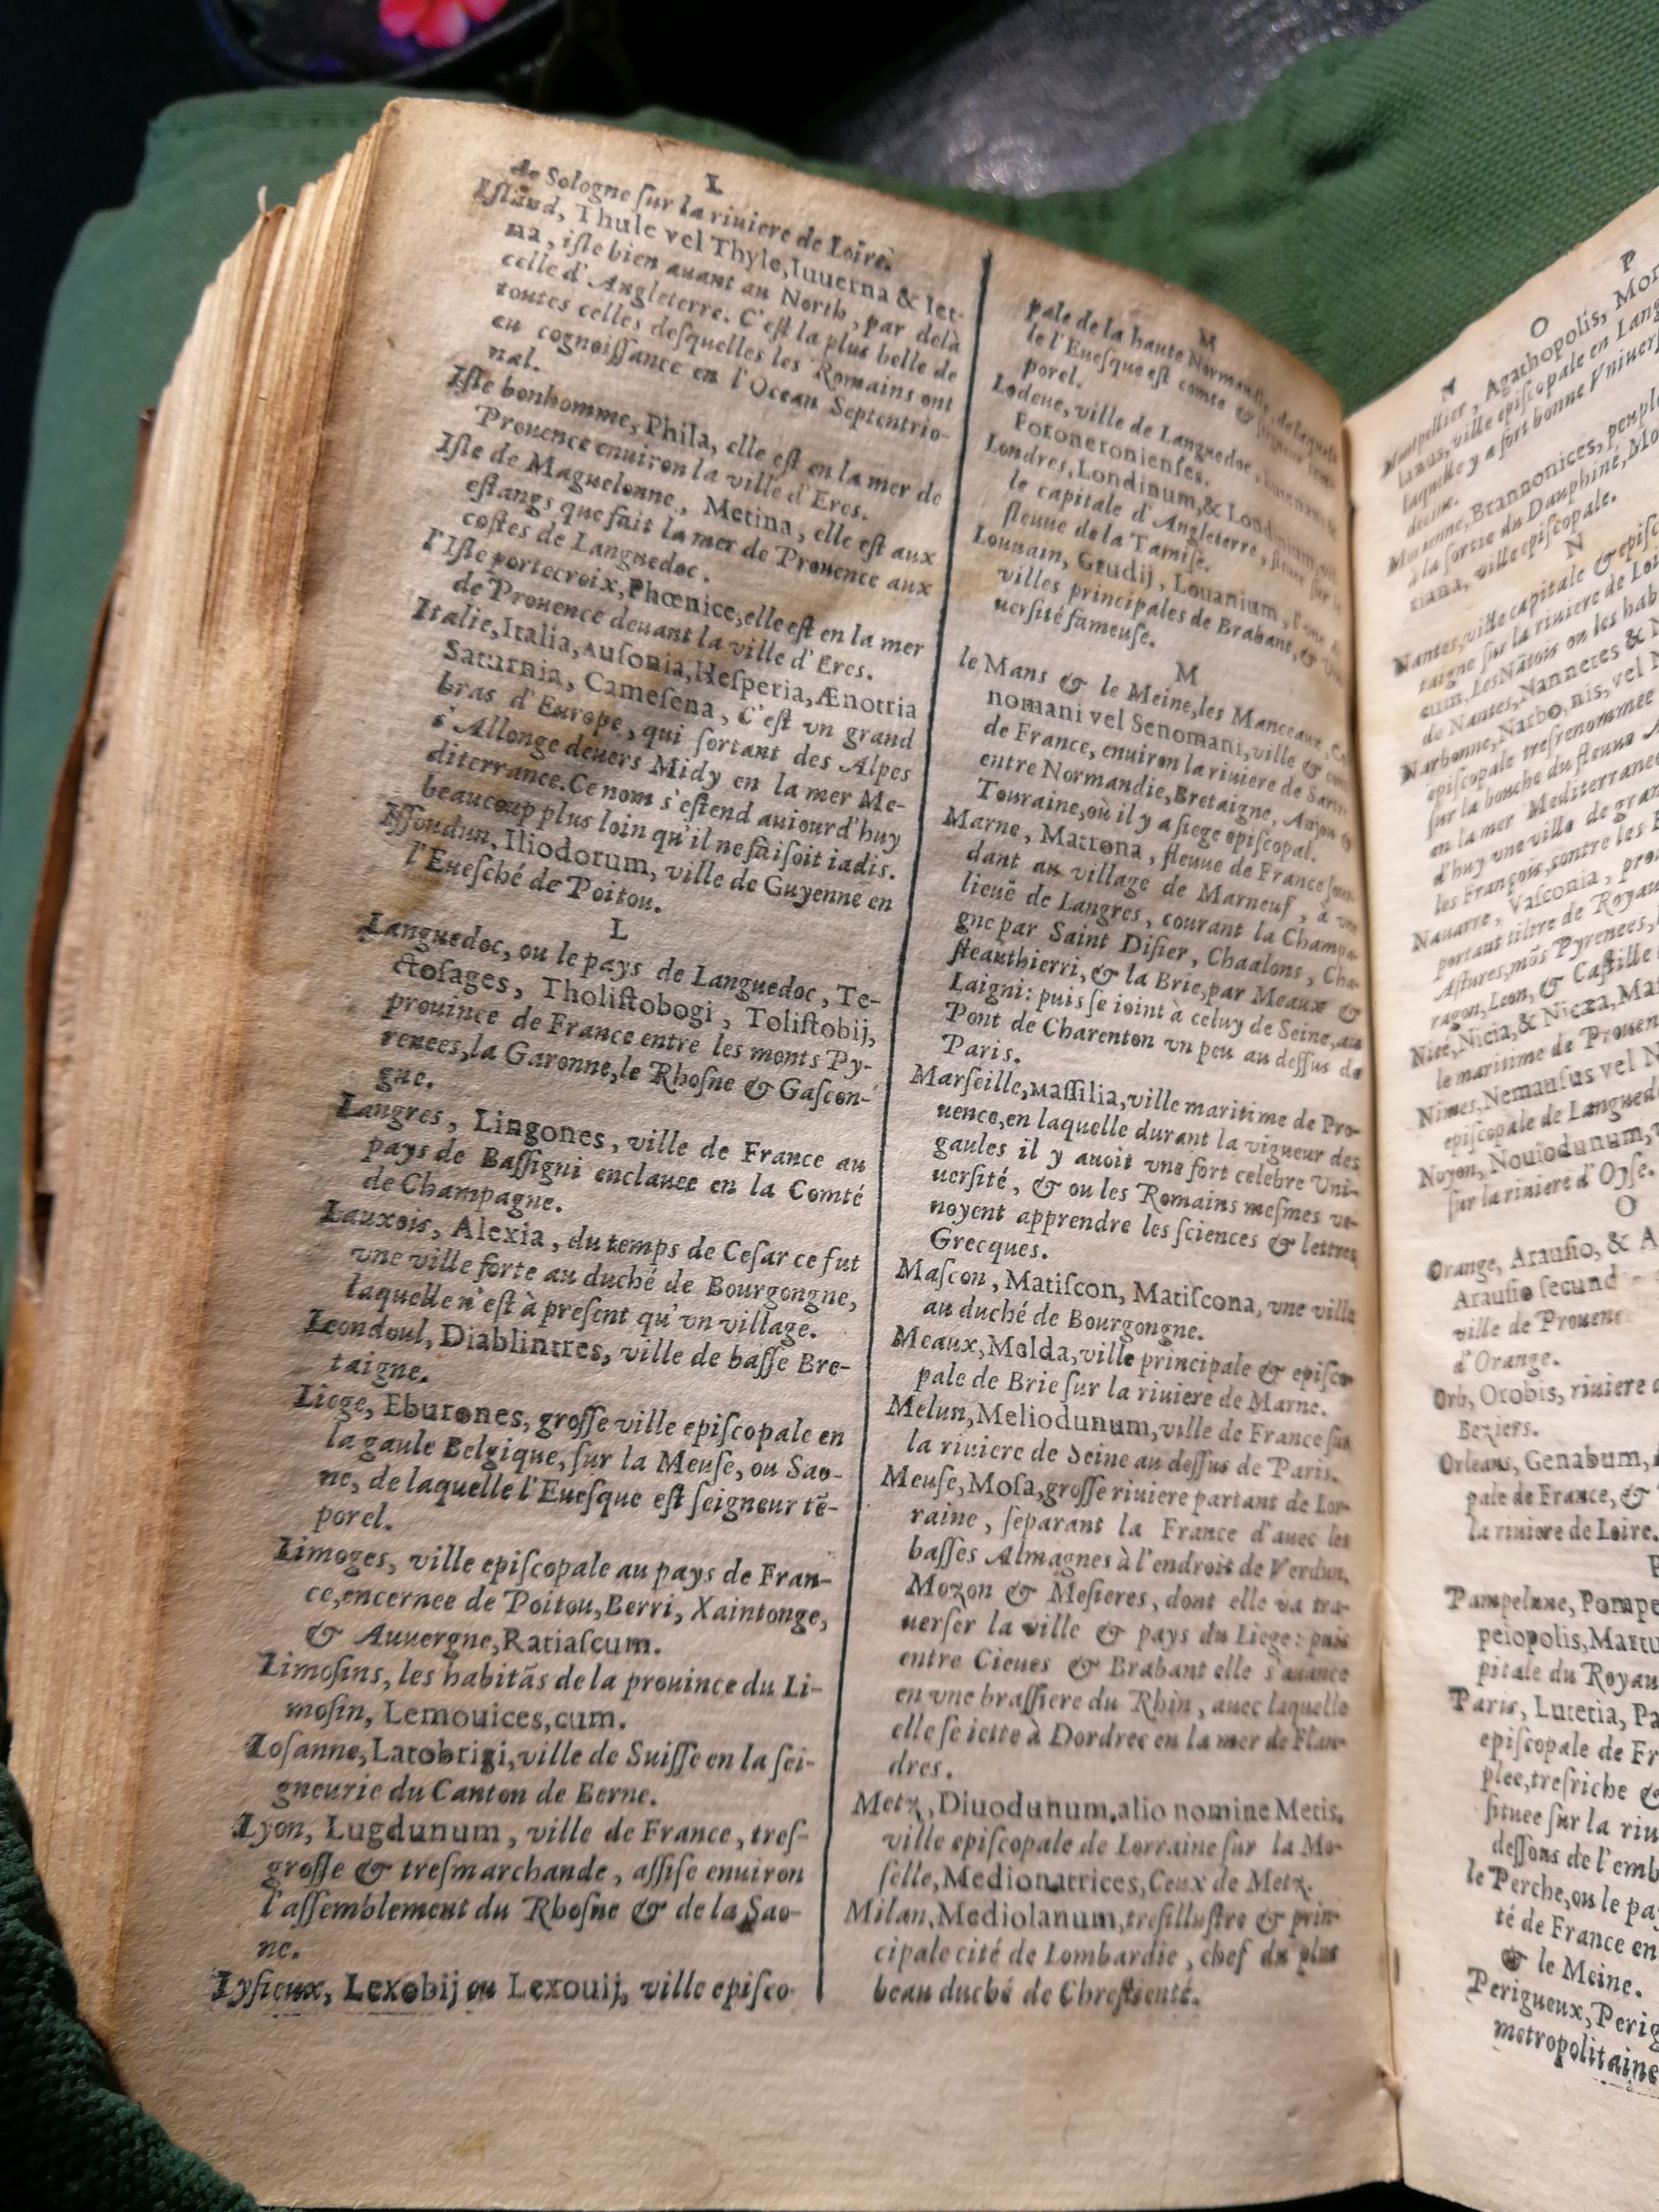 L
de Sologne ſur la riuiere de Loire.
Iſlãud, Thule vel Thyle, Iuuerna & Ier-
na, iſle bien auant au North, par delà
celle d'Angleterre. C'eſt la plus belle de
toutes celles deſquelles les Romains ont
eu cognoiſſance en l'Ocean Septentrio-
nal.
Iſle bonhomme, Phila, elle eſt en la mer de
Prouence enuiron la ville d'Eres.
Iſle de Maguelonne, Metina, elle eſt aux
eſtangs que fait la mer de Prouence aux
coſtes de Languedoc.
l'Iſle portecroix, Phœnice, elle eſt en la mer
de Prouence deuant la ville d'Eres.
Italie, Italia, Auſonia, Heſperia, Ænottia
Saturnia, Cameſena, C'eſt vn grand
bras d'Europe, qui ſortant des Alpes
s'Allonge deuers Midy en la mer Me-
diterrance. Ce nom s'eſtend auiourd'huy
beaucoup plus loin qu'il ne faiſoit iadis.
Iſſoudun, Iliodorum, ville de Guyenne en
l'Eueſché de Poitou.
L
Languedoc, ou le pays de Languedoc, Te-
ctoſages, Tholiſtobogi, Toliſtobij,
prouince de France entre les monts Py-
renees, la Garonne, le Rhoſne & Gaſcon-
gne.
Langres, Lingones, ville de France au
pays de Baſſigni enclauee en la Comté
de Champagne.
Lauxois, Alexia, du temps de Ceſar ce fut
vne ville forte au duché de Bourgongne,
laquelle n'eſt à preſent qu'vn village.
Leondoul, Diablintres, ville de baſſe Bre-
taigne.
Liege, Eburones, groſſe ville epiſcopale en
la gaule Belgique, ſur la Meuſe, ou Sao-
ne, de laquelle l'Eueſque eſt ſeigneur tẽ-
porel.
Limoges, ville epiſcopale au pays de Fran-
ce, encernee de Poitou, Berri, Xaintonge,
& Auuergne, Ratiaſcum.
Limoſins, les habitãs de la prouince du Li-
moſin, Lemouices, cum.
Loſanne, Latobrigi, ville de Suiſſe en la ſei-
gneurie du Canton de Berne.
Lyon, Lugdunum, ville de France, treſ-
groſſe & treſmarchande, aſſiſe enuiron
l'aſſemblement du Rhoſne & de la Sao-
ne.
Lyſieux, Lexobij ou Lexouij, ville epiſco-
M
pale de la haute Normandie, de laquelle
le l'Eueſque eſt comte & ſeigneur tem-
porel.
Lodeue, ville de Languedoc,
Foroneronienſes.
Londres, Londinum, & Londinium, vil-
le capitale d'Angleterre, ſituee ſur le
fleuue de la Tamiſe.
Louuain, Grudij, Louanium, l'vne des
villes principales de Brabant, & Vni-
uerſité fameuſe.
M
le Mans & le Meine, les Manceaux, Ce-
nomani vel Senomani, ville & comté
de France, enuiron la riuiere de Sartre
entre Normandie, Bretaigne, Anjou &
Touraine, où il y a ſiege epiſcopal.
Marne, Matrona, fleuue de France ſour-
dant au village de Marneuf, à vne
lieuë de Langres, courant la Champa-
gne par Saint Diſier, Chaalons, Cha-
ſteauthierri, & la Brie, par Meaux &
Laigni: puis ſe ioint à celuy de Seine, au
Pont de Charenton vn peu au deſſus de
Paris.
Marſeille, Maſſilia, ville maritime de Pro-
uence, en laquelle durant la vigueur des
gaules il y auoit vne fort celebre Vni-
uerſité, & ou les Romains meſmes ve-
noyent apprendre les ſciences & lettres
Grecques.
Maſcon, Matiſcon, Matiſcona, vne ville
au duché de Bourgongne.
Meaux, Melda, ville principale & epiſco-
pale de Brie ſur la riuiere de Marne.
Melun, Meliodunum, ville de France ſur
la riuiere de Seine au deſſus de Paris.
Meuſe, Moſa, groſſe riuiere partant de Lor-
raine, ſeparant la France d'auec les
baſſes Almagnes à l'endroit de Verdun,
Mozon & Meſieres, dont elle va tra-
uerſer la ville & pays du Liege: puis
entre Cieues & Brabant elle s'auance
en vne braſſiere du Rhin, auec laquelle
elle ſe iette à Dordrec en la mer de Flan-
dres.
Metz, Diuodunum, alio nomine Metis,
ville epiſcopale de Lorraine ſur la Mo-
ſelle, Medionatrices, Ceux de Metz.
Milan, Mediolanum, treſilluſtre & prin-
cipale cité de Lombardie, chef du plus
beau duché de Chreſtienté.
N O P
Montpellier, Agathopolis, Mon
lanus, ville epiſcopale en Lang
laquelle y a fort bonne Vniuerſ
decine.
Brannonices, peuple
à la ſortie du Dauphiné, Mo
riana, ville epiſcopale.
N
Nantes, ville capitale & epiſc
taigne ſur la riuiere de Loi
cum, Les Nãtois ou les hab
de Nantes, Nannetes & N
Narbonne, Narbo, nis, vel N
epiſcopale treſrenommee
ſur la bouche du fleuue A
en la mer Mediterranee
d'huy vne ville de gran
les François, contre les E
Nauarre, Vaſconia, pro
portant tiltre de Royau
Aſtures, mõs Pyrenees,
ragon, Leon, & Caſtille
Nice, Nicia, & Nicæa, Maſ
le maritime de Prouen
Nimes, Nemauſus vel N
epiſcopale de Langued
Noyon, Nouiodunum, v
ſur la riuiere d'Oyſe.
O
Orange, Arauſio, & A
Arauſio ſecund
ville de Prouen
d'Orange.
Orb, Orobis, riuiere
Beziers.
Orleans, Genabum,
pale de France, &
la riuiere de Loire.
P
Pampelune, Pompe
peiopolis, Martu
pitale du Royau
Paris, Lutetia, Pa
epiſcopale de Fr
plee, treſriche &
ſituee ſur la riu
deſſous de l'emb
le Perche, ou le pay
té de France en
& le Meine.
Perigueux, Perig
metropolitaine